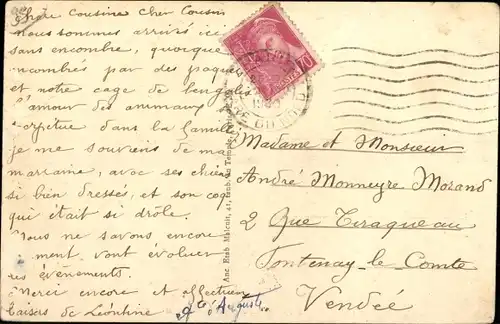 Chère Cousine Cher Cousin
nous sommes arrivés ici
sans encombre, quoique
encombrés par des paque
et notre cage de bengalis
l'amour des animaux
perpétue dans la famille
je me souviens de ma
marraine, avec ses chiens
si bien dressés, et son coq
qui était si drôle.
Nous ne savons encore
ment vont évoluer
les évènements.
Merci encore et affectueu
baisers de Léontine
et d'Auguste
POSTES 70
Anc. Etab. Malcuit, 41, faub. du Temple
Madame et Monsieur
André Monneyre Morand
2 Rue Tiraqueau
Fontenay-le-Comte
Vendée